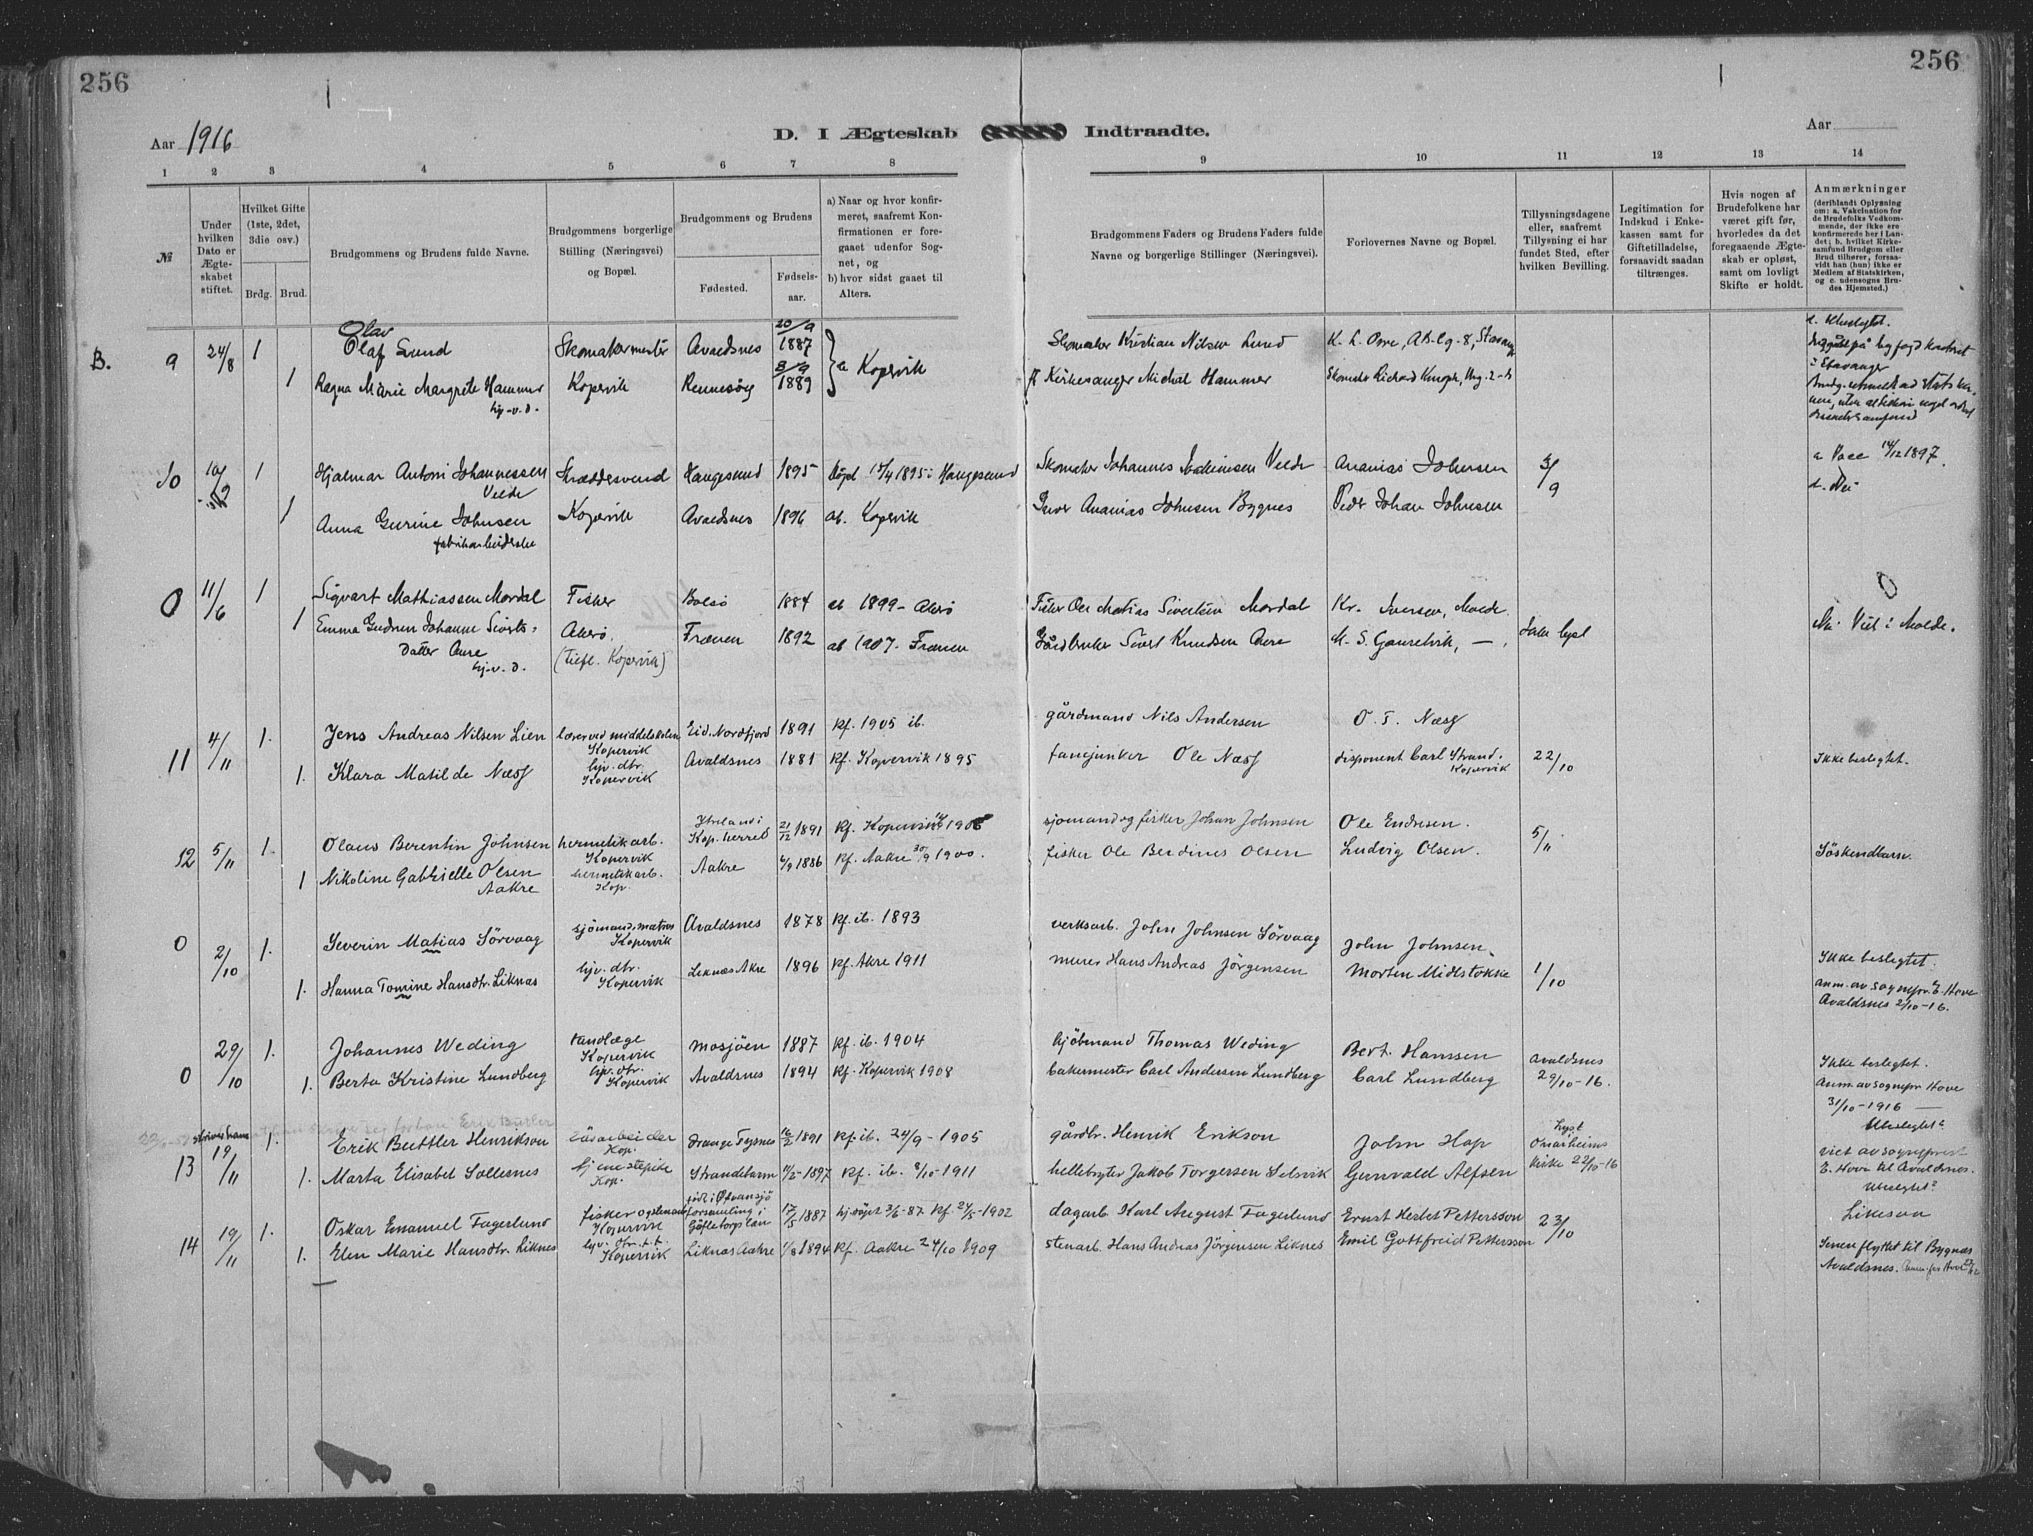 256
256
Aar 1916
D. I Ægteskab Indtraadte.
Aar
1 2 3 4 5 6 7 8 9 10 11 12 13 14
№
Under hvilken Dato er Ægteskabet stiftet.
Hvilket Gifte (1ste, 2det, 3die osv.)
Brdg. Brud.
Brudgommens og Brudens fulde Navne.
Brudgommens borgerlige Stilling (Næringsvei) og Bopæl.
Brudgommens og Brudens
Fødested.
Fødselsaar.
a) Naar og hvor konfirmeret, saafremt Konfirmationen er foregaaet udenfor Sognet, og
b) hvor sidst gaaet til Alters.
Brudgommens Faders og Brudens Faders fulde Navne og borgerlige Stillinger (Næringsvei).
Forlovernes Navne og Bopæl.
Tillysningsdagene eller, saafremt Tillysning ei har fundet Sted, efter hvilken Bevilling.
Legitimation for Indskud i Enkekassen samt for Giftetilladelse, forsaavidt saadan tiltrænges.
Hvis nogen af Brudefolkene har været gift før, hvorledes da det foregaaende Ægteskab er opløst, samt om lovligt Skifte er holdt.
Anmærkninger
(deriblandt Oplysning om: a. Vakcination for de Brudefolks Vedkommende, der ikke ere konfirmerede her i Landet; b. hvilket Kirkesamfund Brudgom eller Brud tilhører, forsaavidt han (hun) ikke er Medlem af Statskirken, og c. udensogns Brudes Hjemsted.)
B. 9 24/8 1 Olav
Olaf Lund Skomakermester Avaldsnes 20/9 1887 a Kopervik Skomaker Kristian Nilsen Lund
1 Ragna Marie Margrete Hammer Kopervik Rennesøy 3/9 1889 Kirkesanger Michal Hammer
hj.v.d.
i Stavanger
10 10/9 1 Hjalmar Antoni Johannessen Skræddersvend Haugesund 1895 Døpt 15/4 1895 i Haugesund Skomaker Johannes Velde Ananias Johnsen 3/9 a Vacc 14/12 1897.
Velde
d. Nei
1 Anna Gurine Johnsen Kopervik Avaldsnes 1896 ab. Kopervik Ananias Johnsen Bygnes Peder Johan Johnsen
fabrikarbeiderske
0 11/6 1 Sigvart Mathiassen Mordal Fisker Bolsø 1884 ab 1899 - Akerø Fisker Ole Matias Sivertsen Mordal Kr. Iversen, Molde 0
1 Emma Gudrun Johanne Siverts- Akerø. Frænen 1892 ab 1907. Frænen Gårdbruker Sivert Knudsen Aure Ikke lyst Viet i Molde.
datter Aure (tilfl. Kopervik)
hj.v.d.
11 4/11 1. Jens Andreas Nilsen Lien lærer ved middelskolen Eid, Nordfjord 1891 kf. 1905 ib. gårdmand Nils Andersen O. T. Næss
Kopervik
1. Klara Matilde Næss hjv. dtr. Avaldsnes 1881 kf. Kopervik 1895 fanejunker Ole Næss disponent Carl Strand. 22/10 Ikke beslegtet.
Kopervik Kopervik
12 5/11 1. Olaus Berentin Johnsen hermetikarb. Kop. herred 21/12 1891 kf. Kopervik sjømand og fisker Johan Johnsen Ole Endresen. 5/11
Kopervik
1 Nikoline Gabrielle Olsen hermetikarb. Aakre 4/9 1886 kf. Aakre 30/9 1900. fisker Ole Berdines Olsen Ludvig Olsen. Søskendbarn.
Aakre Kop.
0 2/10 1. Severin Matias Sørvaag sjømand, matros Avaldsnes 1878 kf. ib. 1893 verksarb. John Johnsen Sørvaag John Johnsen
Kopervik
1. Hanna Tomine Hansdtr. Liknes hjv. dtr. Liknes Akre 1896 kf. Akre 1911 murer Hans Andreas Jörgensen Morten Midtstokke 1/10 Ikke beslegtet.
Kopervik
anm. av sognepr. E. Hove
Avaldsnes 2/10-16.
0 29/10 1. Johannes Weding tandlæge Mosjöen 1887 kf. ib. 1904 kjöbmand Thomas Weding Bert. Hanssen Avaldsnes Ikke beslegtet.
Kopervik
1. Berta Kristine Lundberg hjv. dtr. Avaldsnes 1894 kf. Kopervik 1908 bakermester Carl Andersen Lundberg Carl Lundberg 29/10-16. Anm. av sognepr Hove
Kopervik
31/10-1916
Ubeslegtet
skriver han seg forban Erik Buttler
13 19/11 1. Erik Buttler Henrikson Kop. Drange Tysnes 16/2 1891 kf. ib. 24/9 - 1905 gårdbr. Henrik Erikson John Hop Lyst Onarheims viet av sogneprest
1. Marta Elisabet Sollesnes tjenestepike Strandebarm 1897 kf. ib. 8/10-1911 Jakob Torgersen Selsvik Gunvald Alfsen kirke 22/10-16 E. Hove til Avaldsnes.
Kop.
Ubeslegtet
14 19/11 1. Oskar Emanuel Fagerlund fisker Kopervik 17/5 1887 hj. døpt 3/6-87 kf. 24/5-1902 dagarb Karl August Fagerlund Ernst Herbet Pettersson 23/10 Likesaa
1. Elen Marie Hansdtr. Liknes hjv. dtr. Kopervik Liknas Aakre 1/8 1894 kf. Aakre 24/10 1909 stenarb. Hans Andreas Jörgensen Liknes Emil Gottfreid Pettersson
Senere flyttet til Bygnes
Avaldsnes.